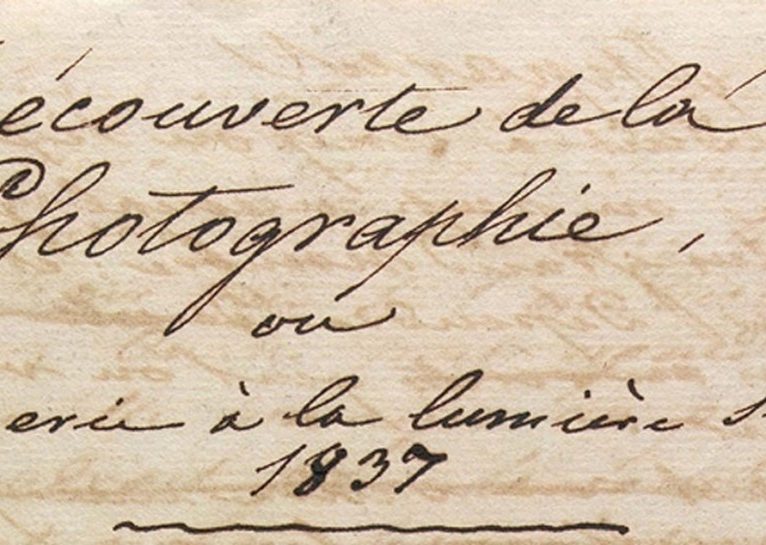 écouverte de la
Photographie,
ou
erie à la lumière
1837